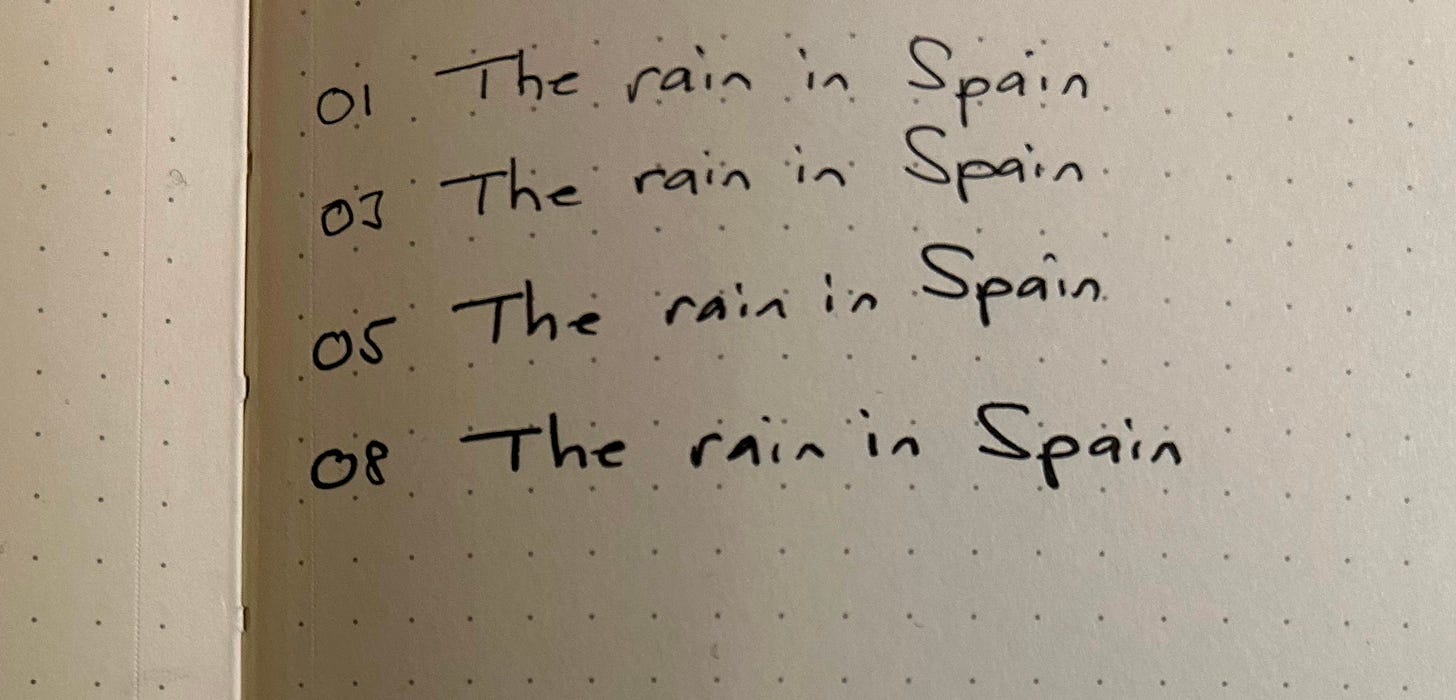 01 The rain in Spain
03 The rain in Spain
05 The rain in Spain
08 The rain in Spain